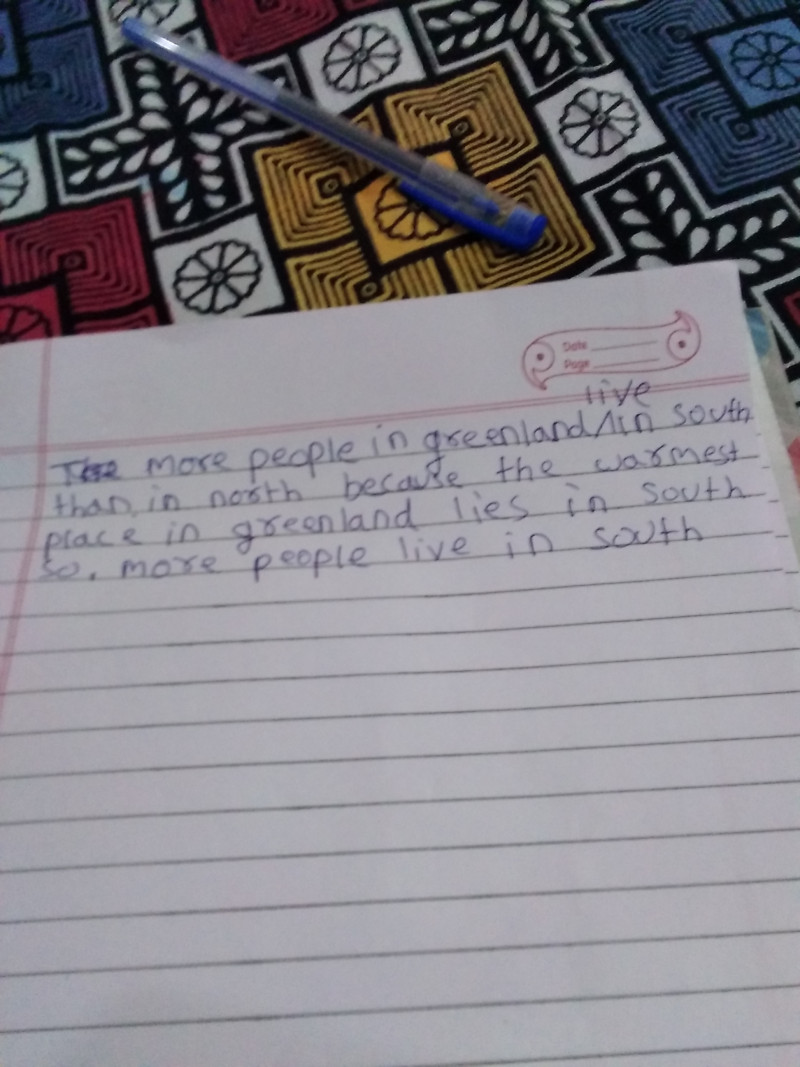 Date
Page
live
More people in greenland/in south
than in north because the warmest
place in greenland lies in south
so, more people live in south